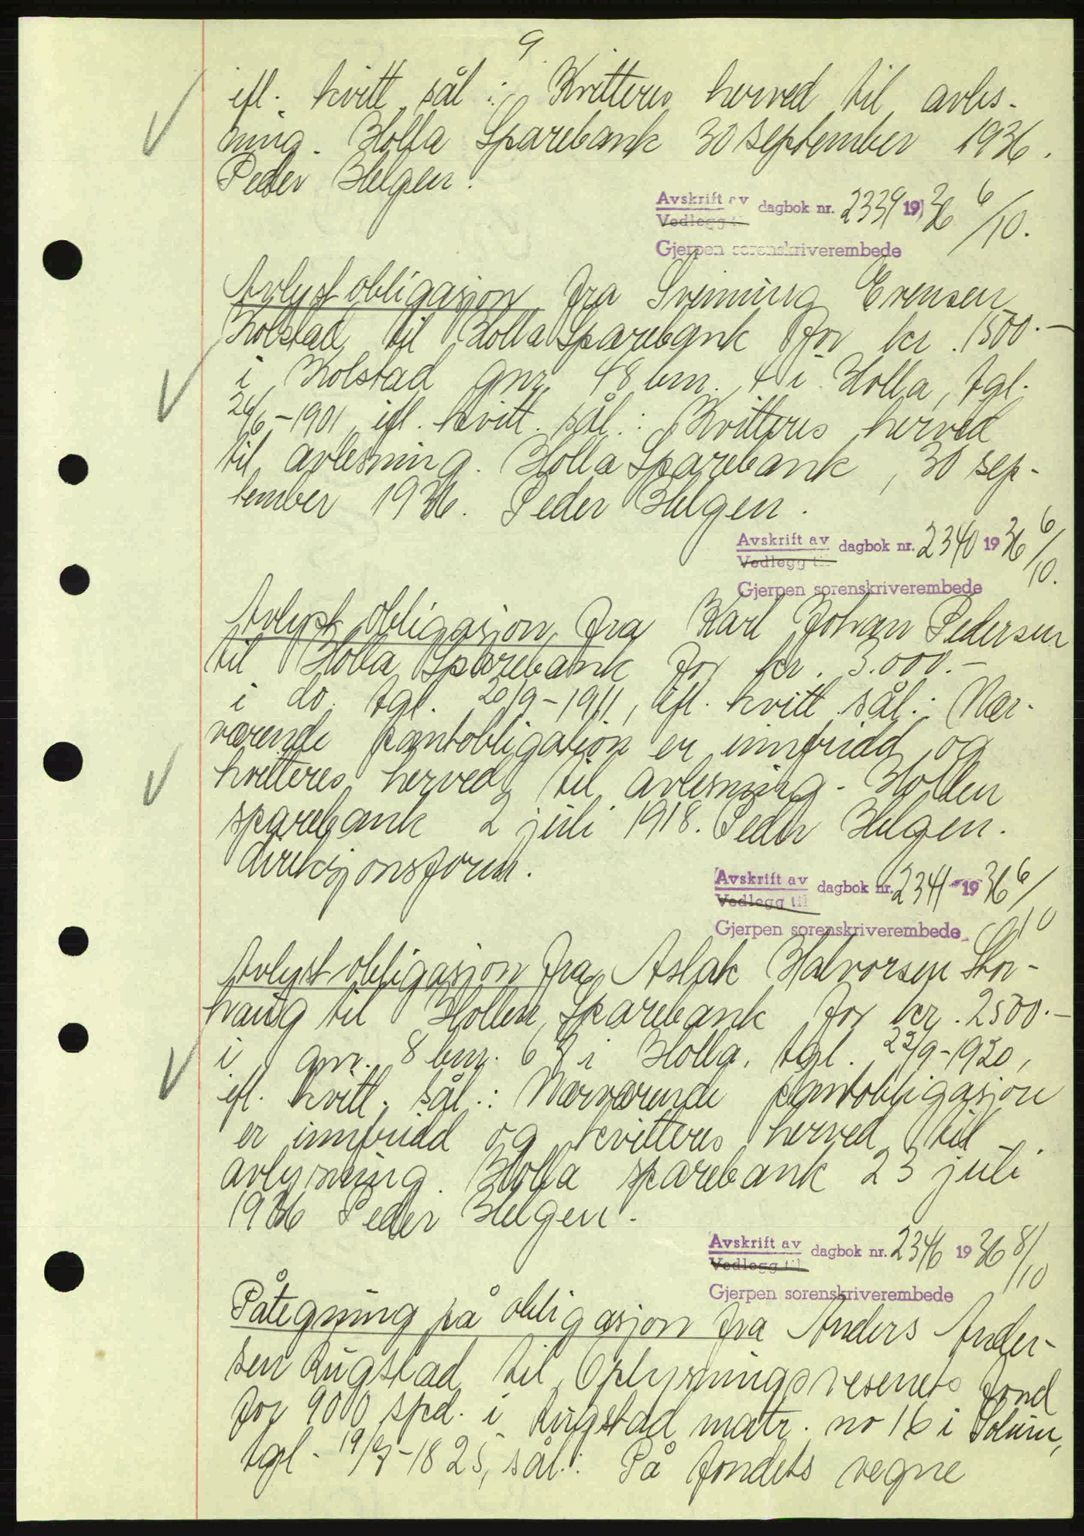 9
ifl. kvitt. sål.: Kvitteres herved til avles-
ning. Holla Sparebank 30 september 1936.
Peder Helgen.
Avskrift av
Vedlegg til dagbok nr. 2339 1936 6/10.
Gjerpen sorenskriverembede
Avlyst obligasjon fra Svenning Evensen
Kolstad til Holla Sparebank for kr. 1500.-
i Kolstad gnr. 48 bnr. 4 i Holla, tgl.
26/6-1901 ifl. kvitt. sål.: Kvitteres herved
til avlesning. Holla Sparebank, 30 sep-
tember 1936. Peder Helgen.
Avskrift av
Vedlegg til dagbok nr. 2340 1936 6/10.
Gjerpen sorenskriverembede
Avlyst obligasjon fra Karl Johan Pedersen
til Holla Sparebank for kr. 3.000.-
i do. tgl. 20/9-1911, ifl. kvitt. sål.: Nær-
værende pantobligation er innfridd og
kvitteres herved til avlesning. Hollen
sparebank 2 juli 1918. Peder Helgen.
direksjonsform.
Avskrift av
Vedlegg til dagbok nr. 2341 1936 6/10
Gjerpen sorenskriverembede
Avlyst obligasjon fra Aslak Halvorsen Stor-
haug til Hollen Sparebank for kr. 2500.-
i gnr. 8 bnr. 63 i Holla, tgl. 22/9-1920,
ifl. kvitt. sål.: Nærværende pantobligasjon
er innfridd og kvitteres herved til
avlysning. Holla sparebank 23 juli
1936 Peder Helgen.
Avskrift av
Vedlegg til dagbok nr. 2346 1936 8/10
Gjerpen sorenskriverembede
Påtegning på obligasjon fra Anders Ander-
sen Rugstad til Oplysningsvesenets fond
for 9000 spd. i Rugstad matr. no 16 i Solum,
tgl. 19/7-1825, sål.: På fondets vegne